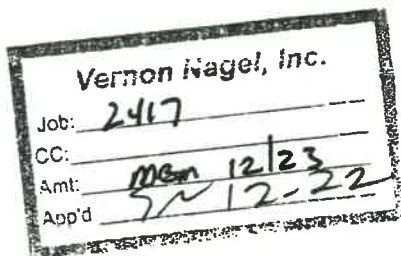 Vernon Nagel, Inc.
Job: 2417
CC:
Amt: 12/23
App'd 12-22